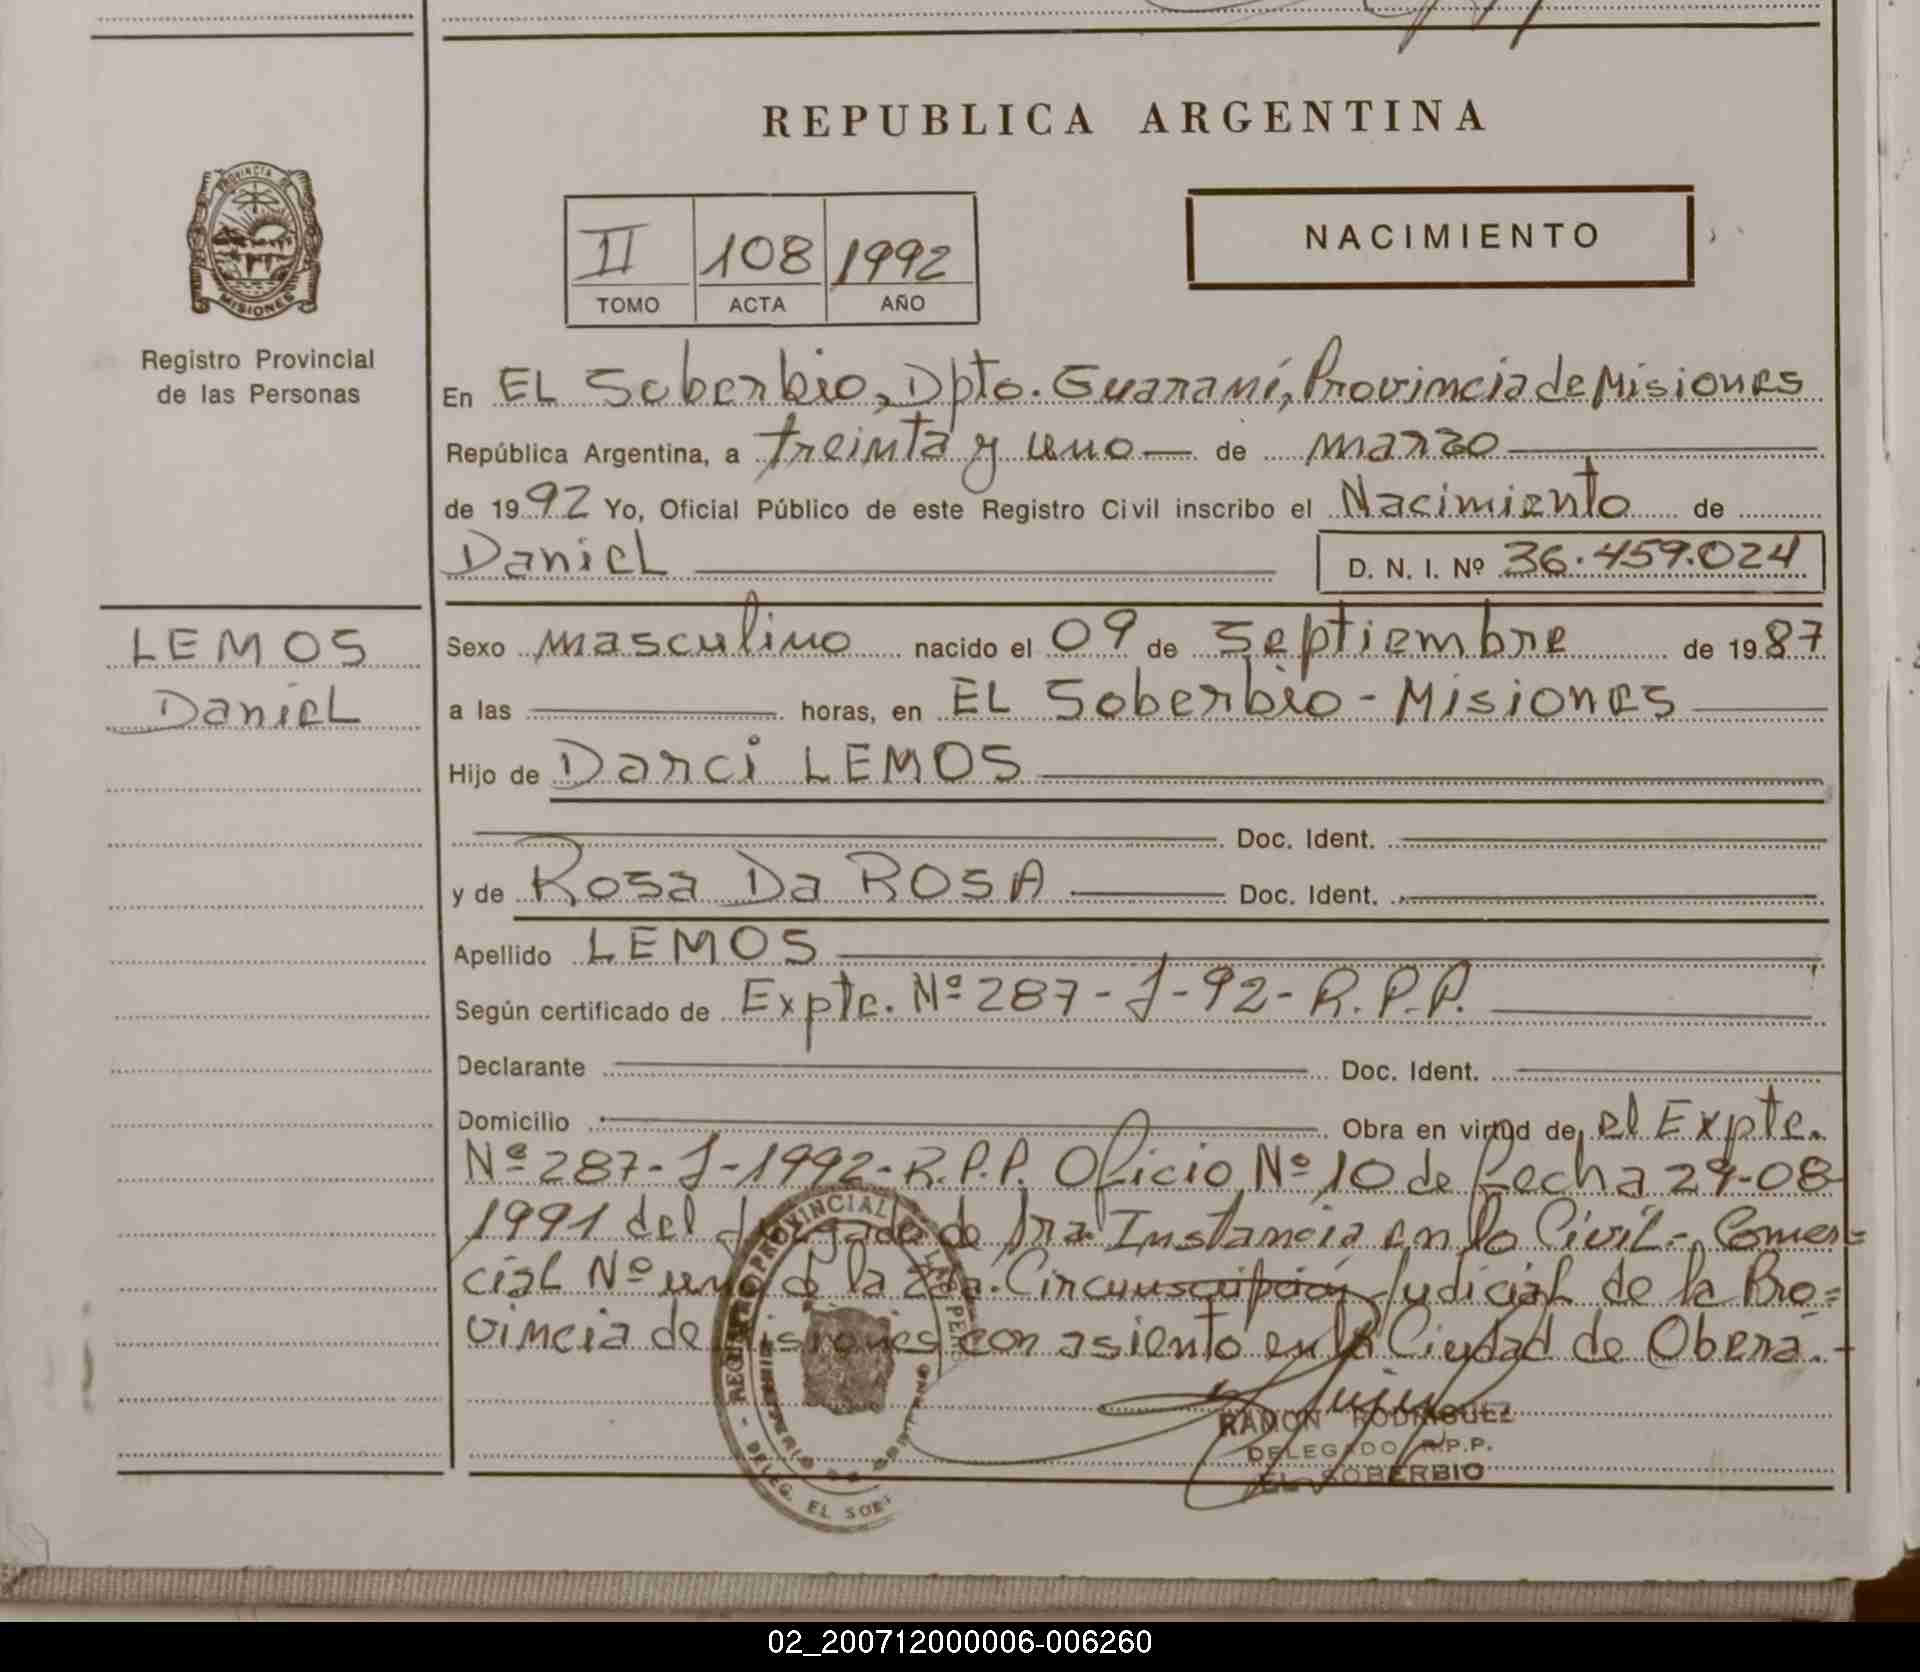 REPUBLICA ARGENTINA
PROVINCIA DE
MISIONES
Registro Provincial
de las Personas
II 108 1992
TOMO ACTA AÑO
NACIMIENTO
En EL Soberbio, Dpto. Guaraní, Provincia de Misiones
República Argentina, a treinta y uno — de marzo
de 1992 Yo, Oficial Público de este Registro Civil inscribo el Nacimiento de
Daniel
D. N. I. Nº 36.459.024
LEMOS
Daniel
Sexo masculino nacido el 09 de Septiembre de 1987
a las horas, en EL Soberbio - Misiones
Hijo de Darci LEMOS
Doc. Ident.
y de Rosa Da ROSA Doc. Ident.
Apellido LEMOS
Según certificado de Expte. Nº 287-J-92-R.P.P.
Declarante Doc. Ident.
Domicilio Obra en virtud de, el Expte.
Nº 287-J-1992-R.P.P. Oficio Nº 10 de fecha 29-08-
1991 del Juzgado de 1ra. Instancia en lo Civil - Comer=
cial Nº uno de la 2da. Circunscripción Judicial de la Pro=
vincia de Misiones con asiento en la Ciudad de Oberá.-
REGISTRO PROVINCIAL DE LAS PERS
DELEG. EL SOB
RAMON RODRIGUEZ
DELEGADO R.P.P.
EL SOBERBIO
02_200712000006-006260